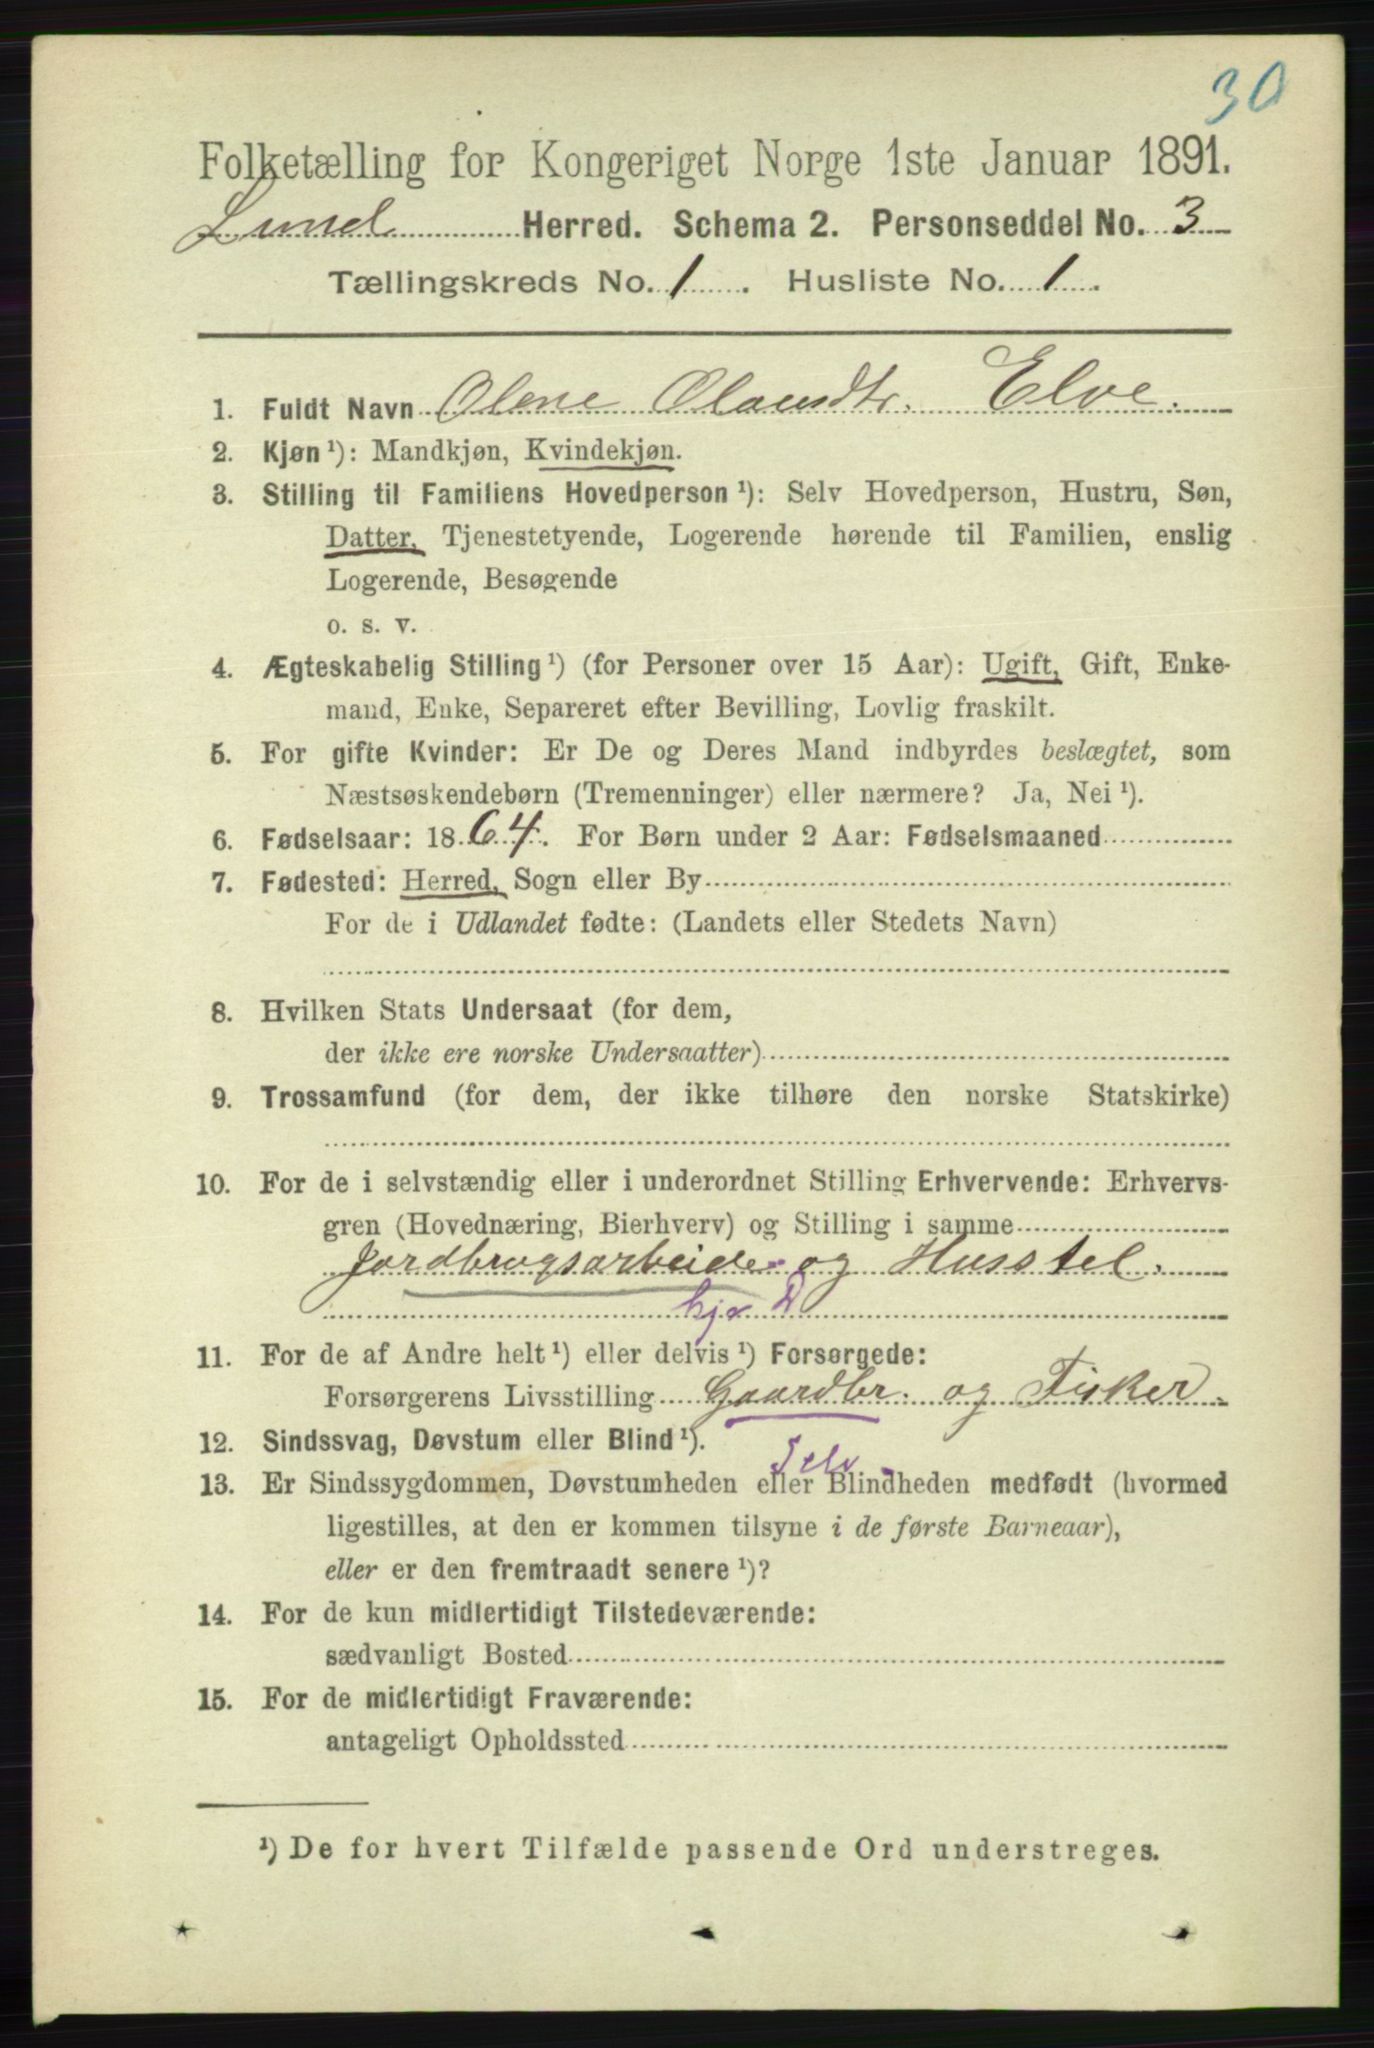 30
Folketælling for Kongeriget Norge 1ste Januar 1891.
Lund Herred. Schema 2. Personseddel No. 3
Tællingskreds No. 1. Husliste No. 1.
1. Fuldt Navn Olene Olausdtr. Elve.
2. Kjøn ¹): Mandkjøn, Kvindekjøn.
3. Stilling til Familiens Hovedperson ¹): Selv Hovedperson, Hustru, Søn,
Datter, Tjenestetyende, Logerende hørende til Familien, enslig
Logerende, Besøgende
o. s. v.
4. Ægteskabelig Stilling ¹) (for Personer over 15 Aar): Ugift, Gift, Enke-
mand, Enke, Separeret efter Bevilling, Lovlig fraskilt.
5. For gifte Kvinder: Er De og Deres Mand indbyrdes beslægtet, som
Næstsøskendebørn (Tremenninger) eller nærmere? Ja, Nei ¹).
6. Fødselsaar: 1864. For Børn under 2 Aar: Fødselsmaaned
7. Fødested: Herred, Sogn eller By
For de i Udlandet fødte: (Landets eller Stedets Navn)
8. Hvilken Stats Undersaat (for dem,
der ikke ere norske Undersaatter)
9. Trossamfund (for dem, der ikke tilhøre den norske Statskirke)
10. For de i selvstændig eller i underordnet Stilling Erhvervende: Erhvervs-
gren (Hovednæring, Bierhverv) og Stilling i samme
Jordbrugsarbeide og Husstel.
hjx D
11. For de af Andre helt ¹) eller delvis ¹) Forsørgede:
Forsørgerens Livsstilling Gaardbr. og Fisker.
12. Sindssvag, Døvstum eller Blind ¹).
Selv
13. Er Sindssygdommen, Døvstumheden eller Blindheden medfødt (hvormed
ligestilles, at den er kommen tilsyne i de første Barneaar),
eller er den fremtraadt senere ¹)?
14. For de kun midlertidigt Tilstedeværende:
sædvanligt Bosted
15. For de midlertidigt Fraværende:
antageligt Opholdssted
¹) De for hvert Tilfælde passende Ord understreges.